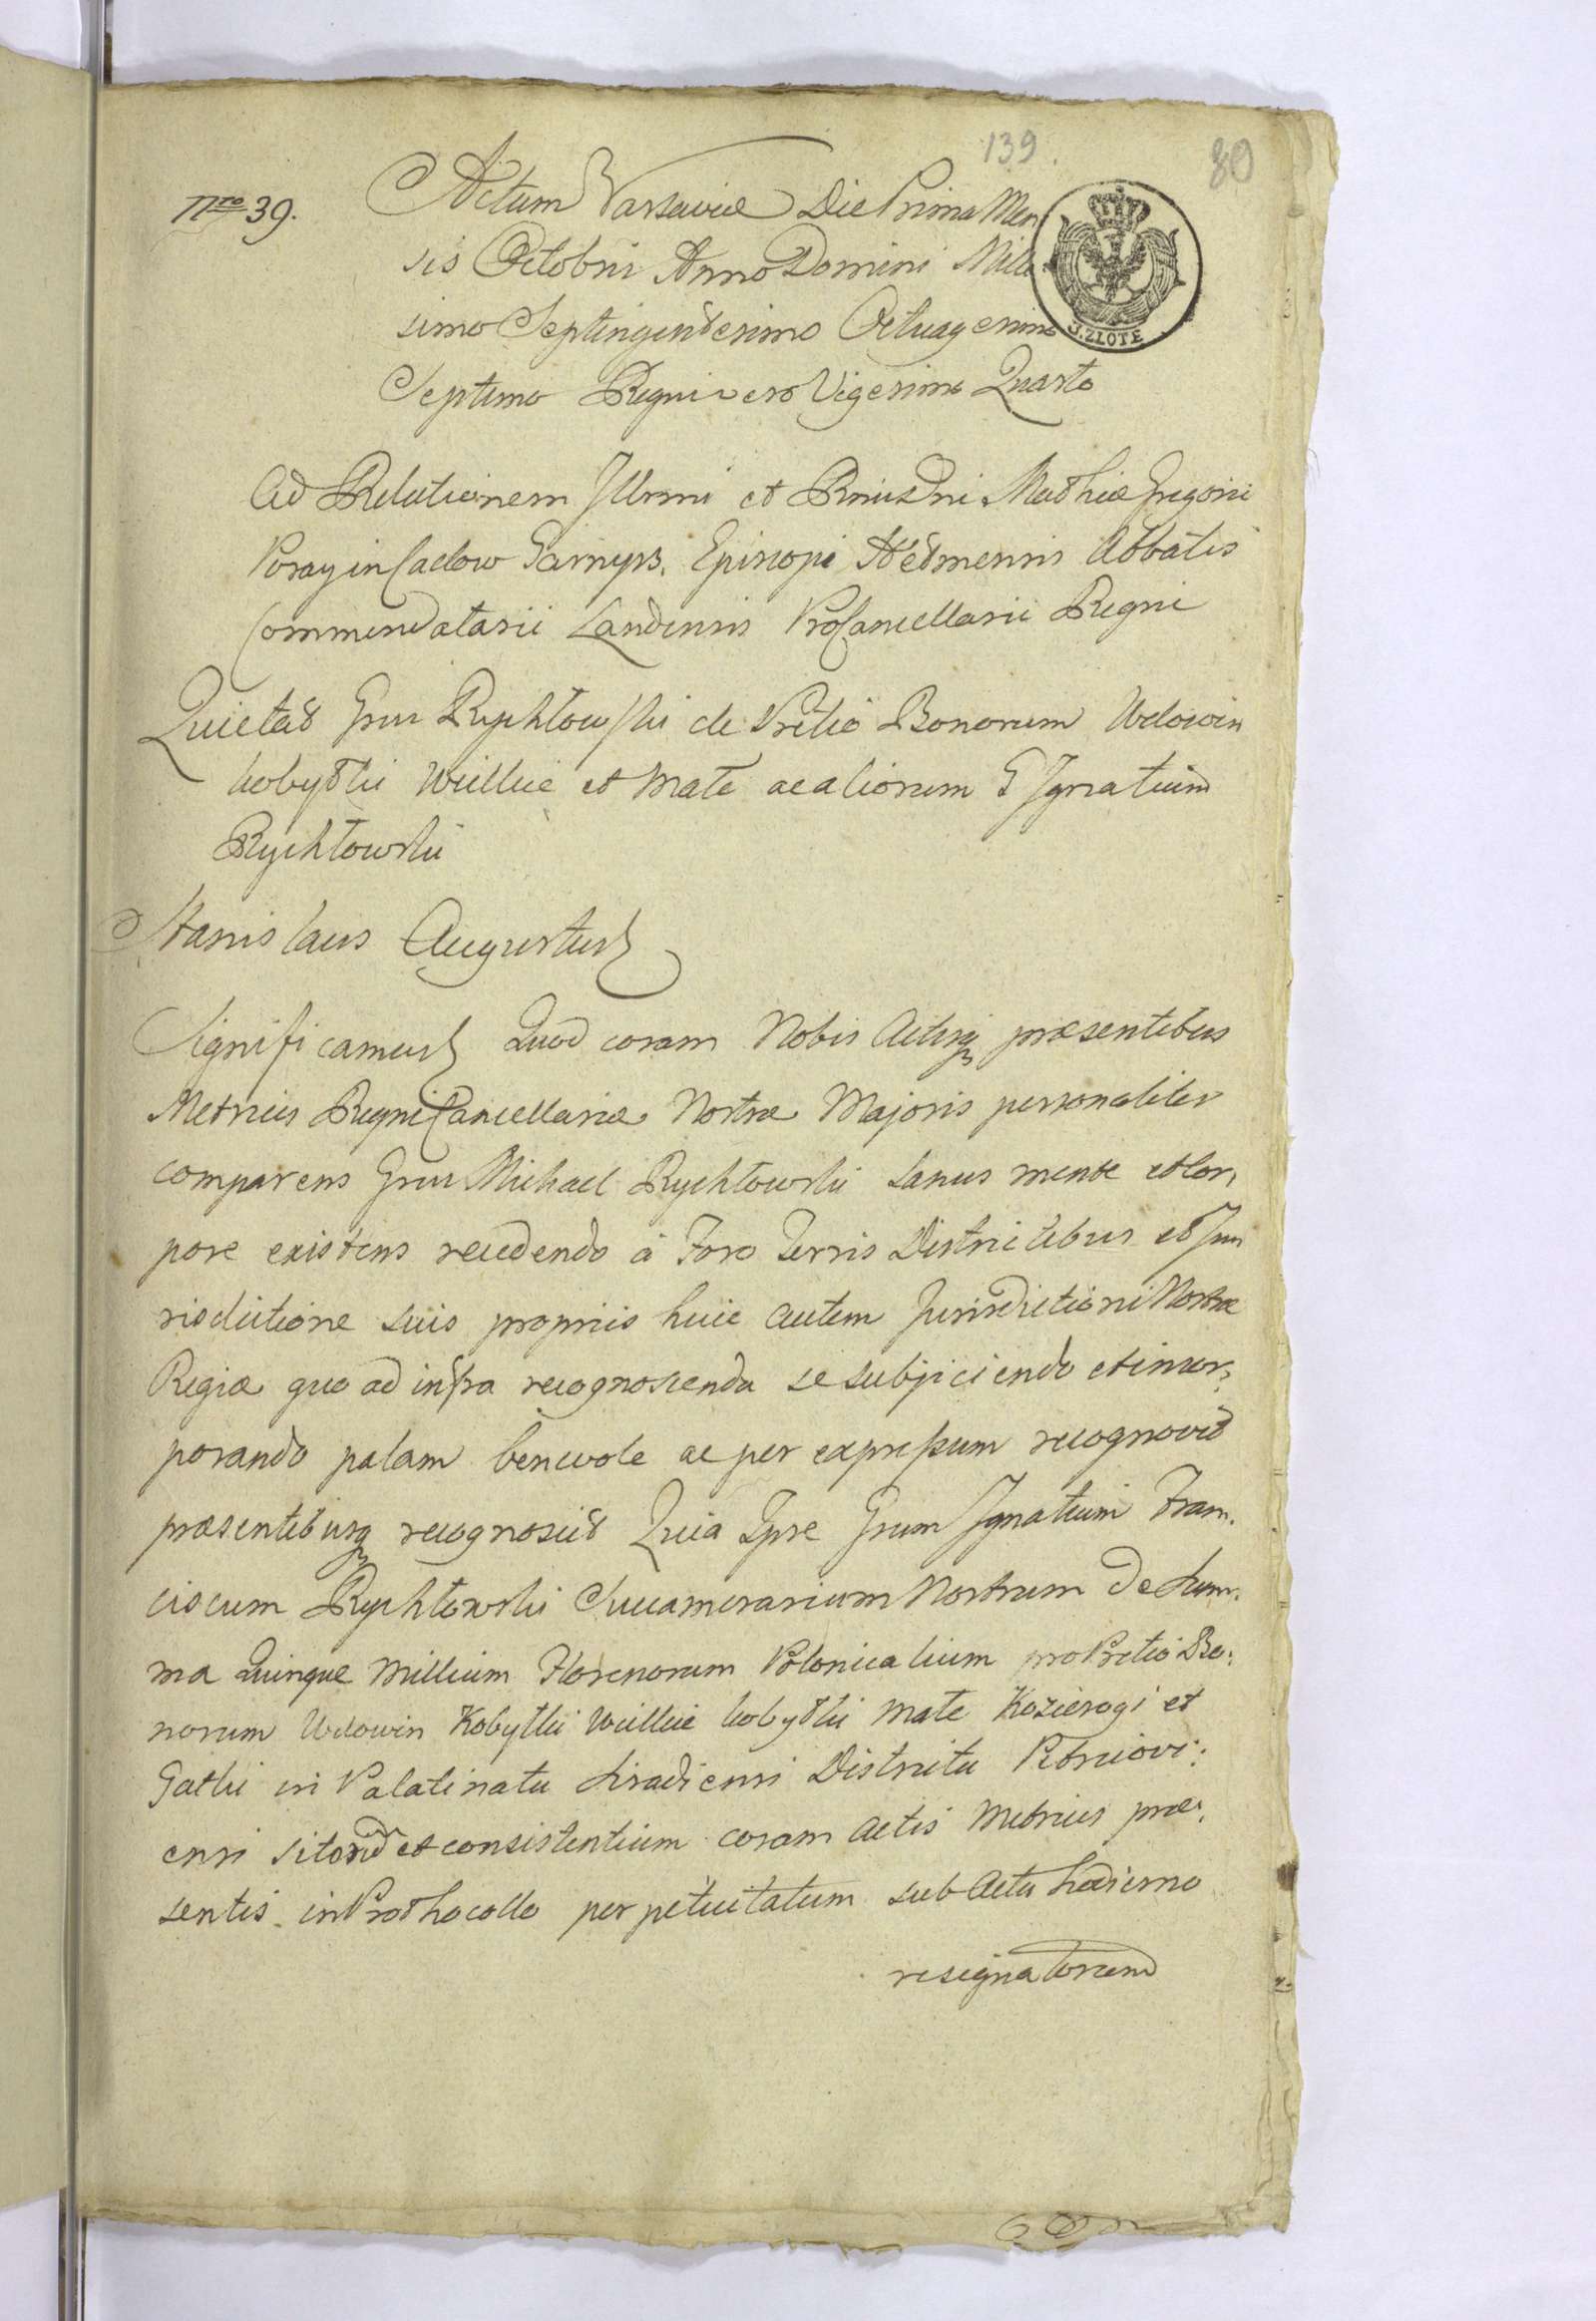 139. 80
Nro 39.
Actum Varsaviæ Die Prima Men
sis Octobris Anno Domini Mille
simo Septingentesimo Octuagesimo
3. ZŁOTE
Septimo Regni vero Vigesimo Quarto
Ad Relationem Illrmi et Rmi Dni Mathiæ Gregorii
Poray in Cadow Garnysz. Episcopi Chelmensis Abbatis
Commendatarii Landensis ProCancellarii Regni
Quietat Grsus Rychłowski de Pretio Bonorum Wdowin
kobyłki Wielkie et Małe ac aliorum G Ignatium
Rychłowski
Stanislaus Augustus
Significamus Quod coram Nobis Actisq præsentibus
Metrices Regni Cancellariæ Nostræ Majoris personaliter
comparens Grsus Michael Rychłowski sanus mente et Cor,
pore existens recedendo à Foro Terris Districtibus et Ju
risdictione suis propriis huic autem Jurisdictioni Nostræ
Regiæ quo ad infra recognoscenda se subjiciendo et incor,
porando palam benevole ac per expressum recognovit
præsentibusq recognoscit Quia Ipse Grsum Ignatium Fran.
ciscum Rychłowski Succamerarium Nostrum De Sum.
ma Quinque Millium Florenorum Polonicalium pro Pretio Bo:
norum Wdowin Kobyłki Wielkie kobyłki Małe Kozierogi et
Gatki in Palatinatu Siradiensi Districtu Petricovi:
ensi sitorum et consistentium coram Actis Metrices præ:
sentis in Prothocollo perpetuitatum sub Actu hodierno
resignatorum